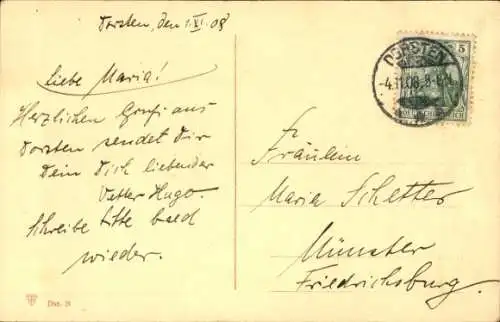 Dorsten, den 1.XI.08
Liebe Maria!
Herzlichen Gruß aus
Dorsten sendet Dir
Dein Dich liebender
Vetter Hugo.
Schreibe bitte bald
wieder.
Dtst. 21
DORSTEN
-4.11.08.8-9V.
5
Fräulein
Maria Schetter
Münster
Friedrichsburg.